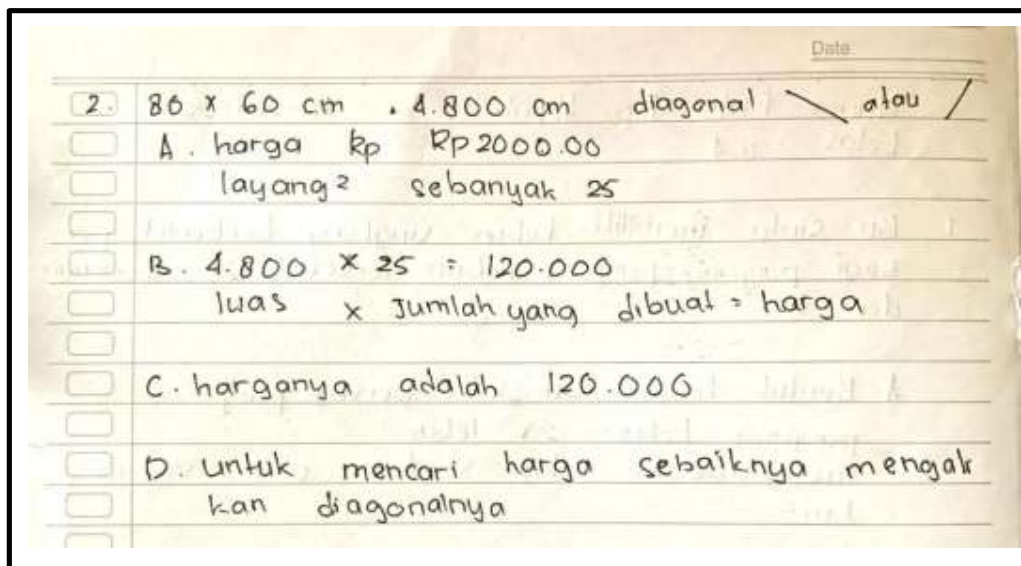 Date
2. 80 x 60 cm . 4.800 cm diagonal \ atau /
A. harga Rp Rp 2000.00
layang² sebanyak 25
B. 4.800 x 25 = 120.000
luas x Jumlah yang dibuat = harga
C. harganya adalah 120.000
D. untuk mencari harga sebaiknya mengali
kan diagonalnya